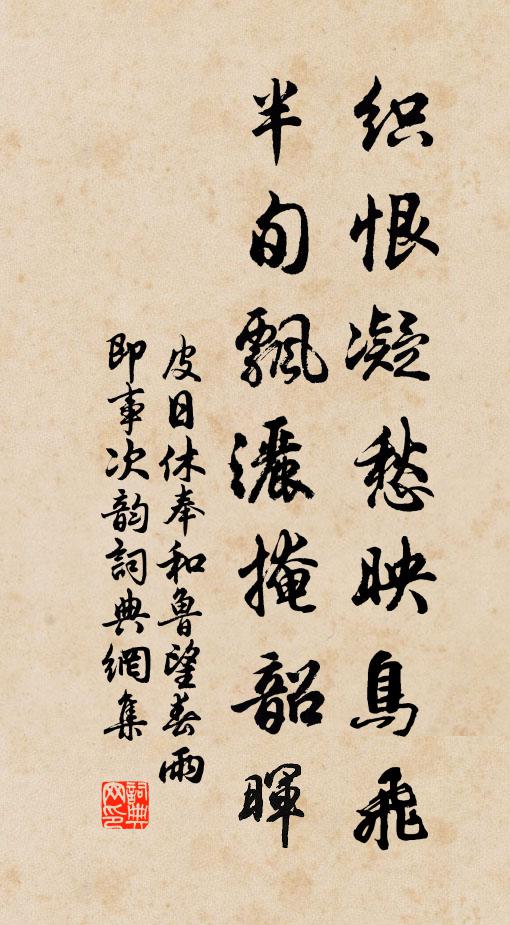 织恨凝愁映鳥飛
半旬飄灑掩韶暉
皮日休奉和魯望春雨
即事次韵詞典網集
詞典网印